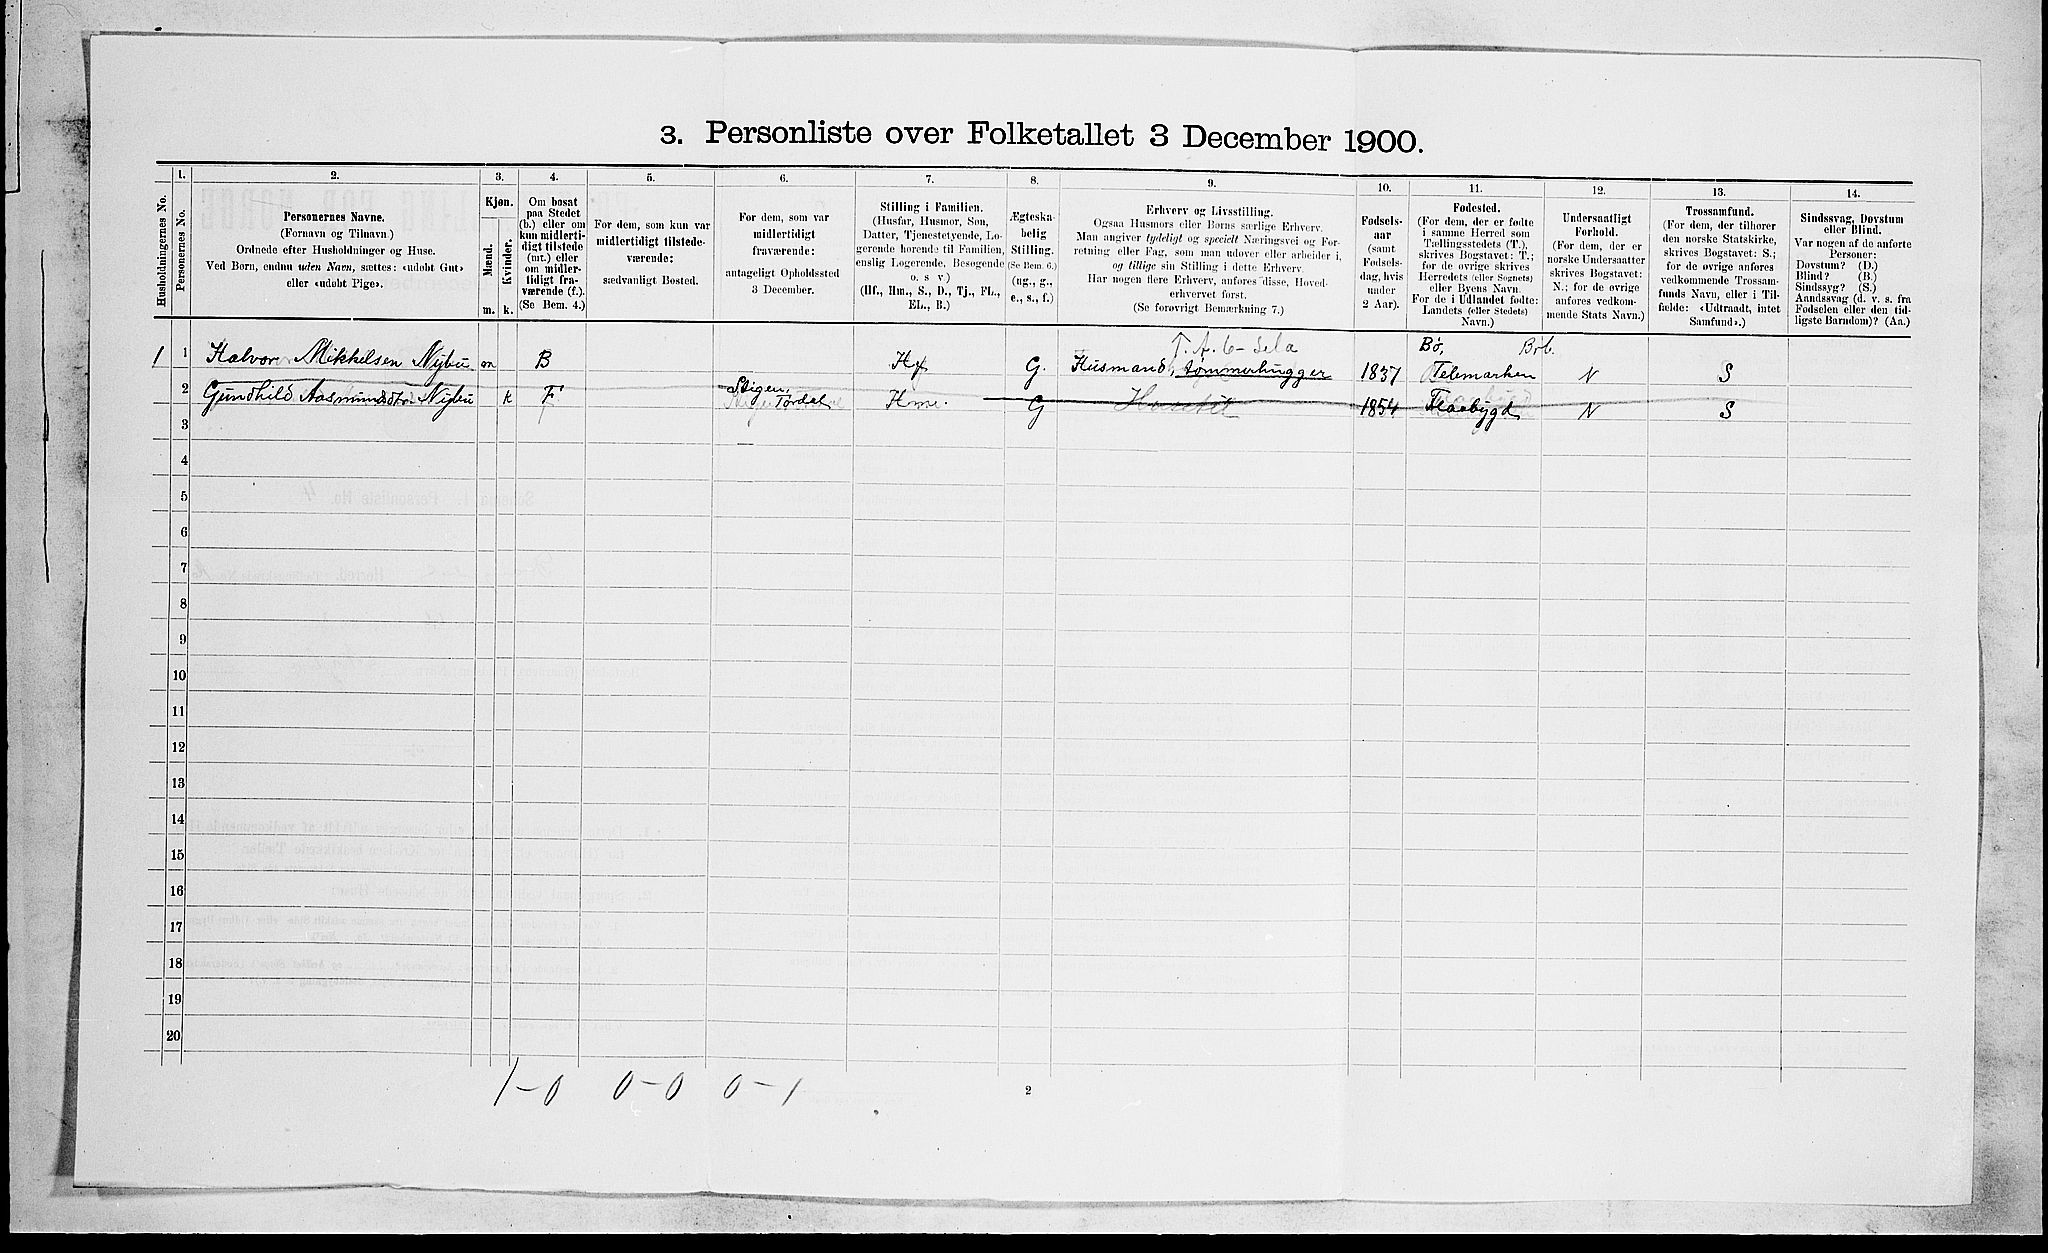 3. Personliste over Folketallet 3 December 1900.
Husholdningernes No.
1.
Personernes No.
2.
Personernes Navne.
(Fornavn og Tilnavn.)
Ordnede efter Husholdninger og Huse.
Ved Børn, endnu uden Navn, sættes: «udøbt Gut»
eller «udøbt Pige».
3.
Kjøn.
Mænd.
Kvinder.
m. k.
4.
Om bosat
paa Stedet
(b.) eller om
kun midlerti-
digt tilstede
(mt.) eller
om midler-
tidigt fra-
værende (f.).
(Se Bem. 4.)
5.
For dem, som kun var
midlertidigt tilstede-
værende:
sædvanligt Bosted.
6.
For dem, som var
midlertidigt
fraværende:
antageligt Opholdssted
3 December.
7.
Stilling i Familien.
(Husfar, Husmor, Søn,
Datter, Tjenestetyende, Lo-
gerende hørende til Familien,
enslig Logerende, Besøgende
o. s v)
(Hf., Hm., S., D., Tj., FL.,
EL., B.)
8.
Ægteska-
belig
Stilling.
(Se Bem. 6.)
(ug., g.,
e., s., f.)
9.
Erhverv og Livsstilling.
Ogsaa Husmors eller Børns særlige Erhverv.
Man angiver tydeligt og specielt Næringsvei og For-
retning eller Fag, som man udøver eller arbeider i,
og tillige sin Stilling i dette Erhverv.
Har nogen flere Erhverv, anføres disse, Hoved-
erhvervet først.
(Se forøvrigt Bemærkning 7.)
10.
Fødsels-
aar
(samt
Fødsels-
dag, hvis
under
2 Aar).
11.
Fødested.
(For dem, der er fødte
i samme Herred som
Tællingsstedets (T.),
skrives Bogstavet: T.;
for de øvrige skrives
Herredets (eller Sognets)
eller Byens Navn.
For de i Udlandet fødte:
Landets (eller Stedets)
Navn.)
12.
Undersaatligt
Forhold.
(For dem, der er
norske Undersaatter
skrives Bogstavet:
N.; for de øvrige
anføres vedkom-
mende Stats Navn.)
13.
Trossamfund.
(For dem, der tilhører
den norske Statskirke,
skrives Bogstavet: S.;
for de øvrige anføres
vedkommende Trossam-
funds Navn, eller i Til-
fælde: «Udtraadt, intet
Samfund».)
14.
Sindssvag, Døvstum
eller Blind.
Var nogen af de anførte
Personer:
Døvstum? (D.)
Blind? (B.)
Sindssyg? (S.)
Aandssvag (d. v. s. fra
Fødselen eller den tid-
ligste Barndom)? (Aa.)
Bø,
1 1 Halvor Mikkelsen Nybu m B Hf G. Husmand, tømmerhugger 1837 Telemarken N S
Stigen,
2 Gundhild Aasmundsdtr Nybu k F Tørdal Hme. G 1854 Flaabygd N S
3
4
5
6
7
8
9
10
11
12
13
14
15
16
17
18
19
20
1-0 0-0 0-1
2